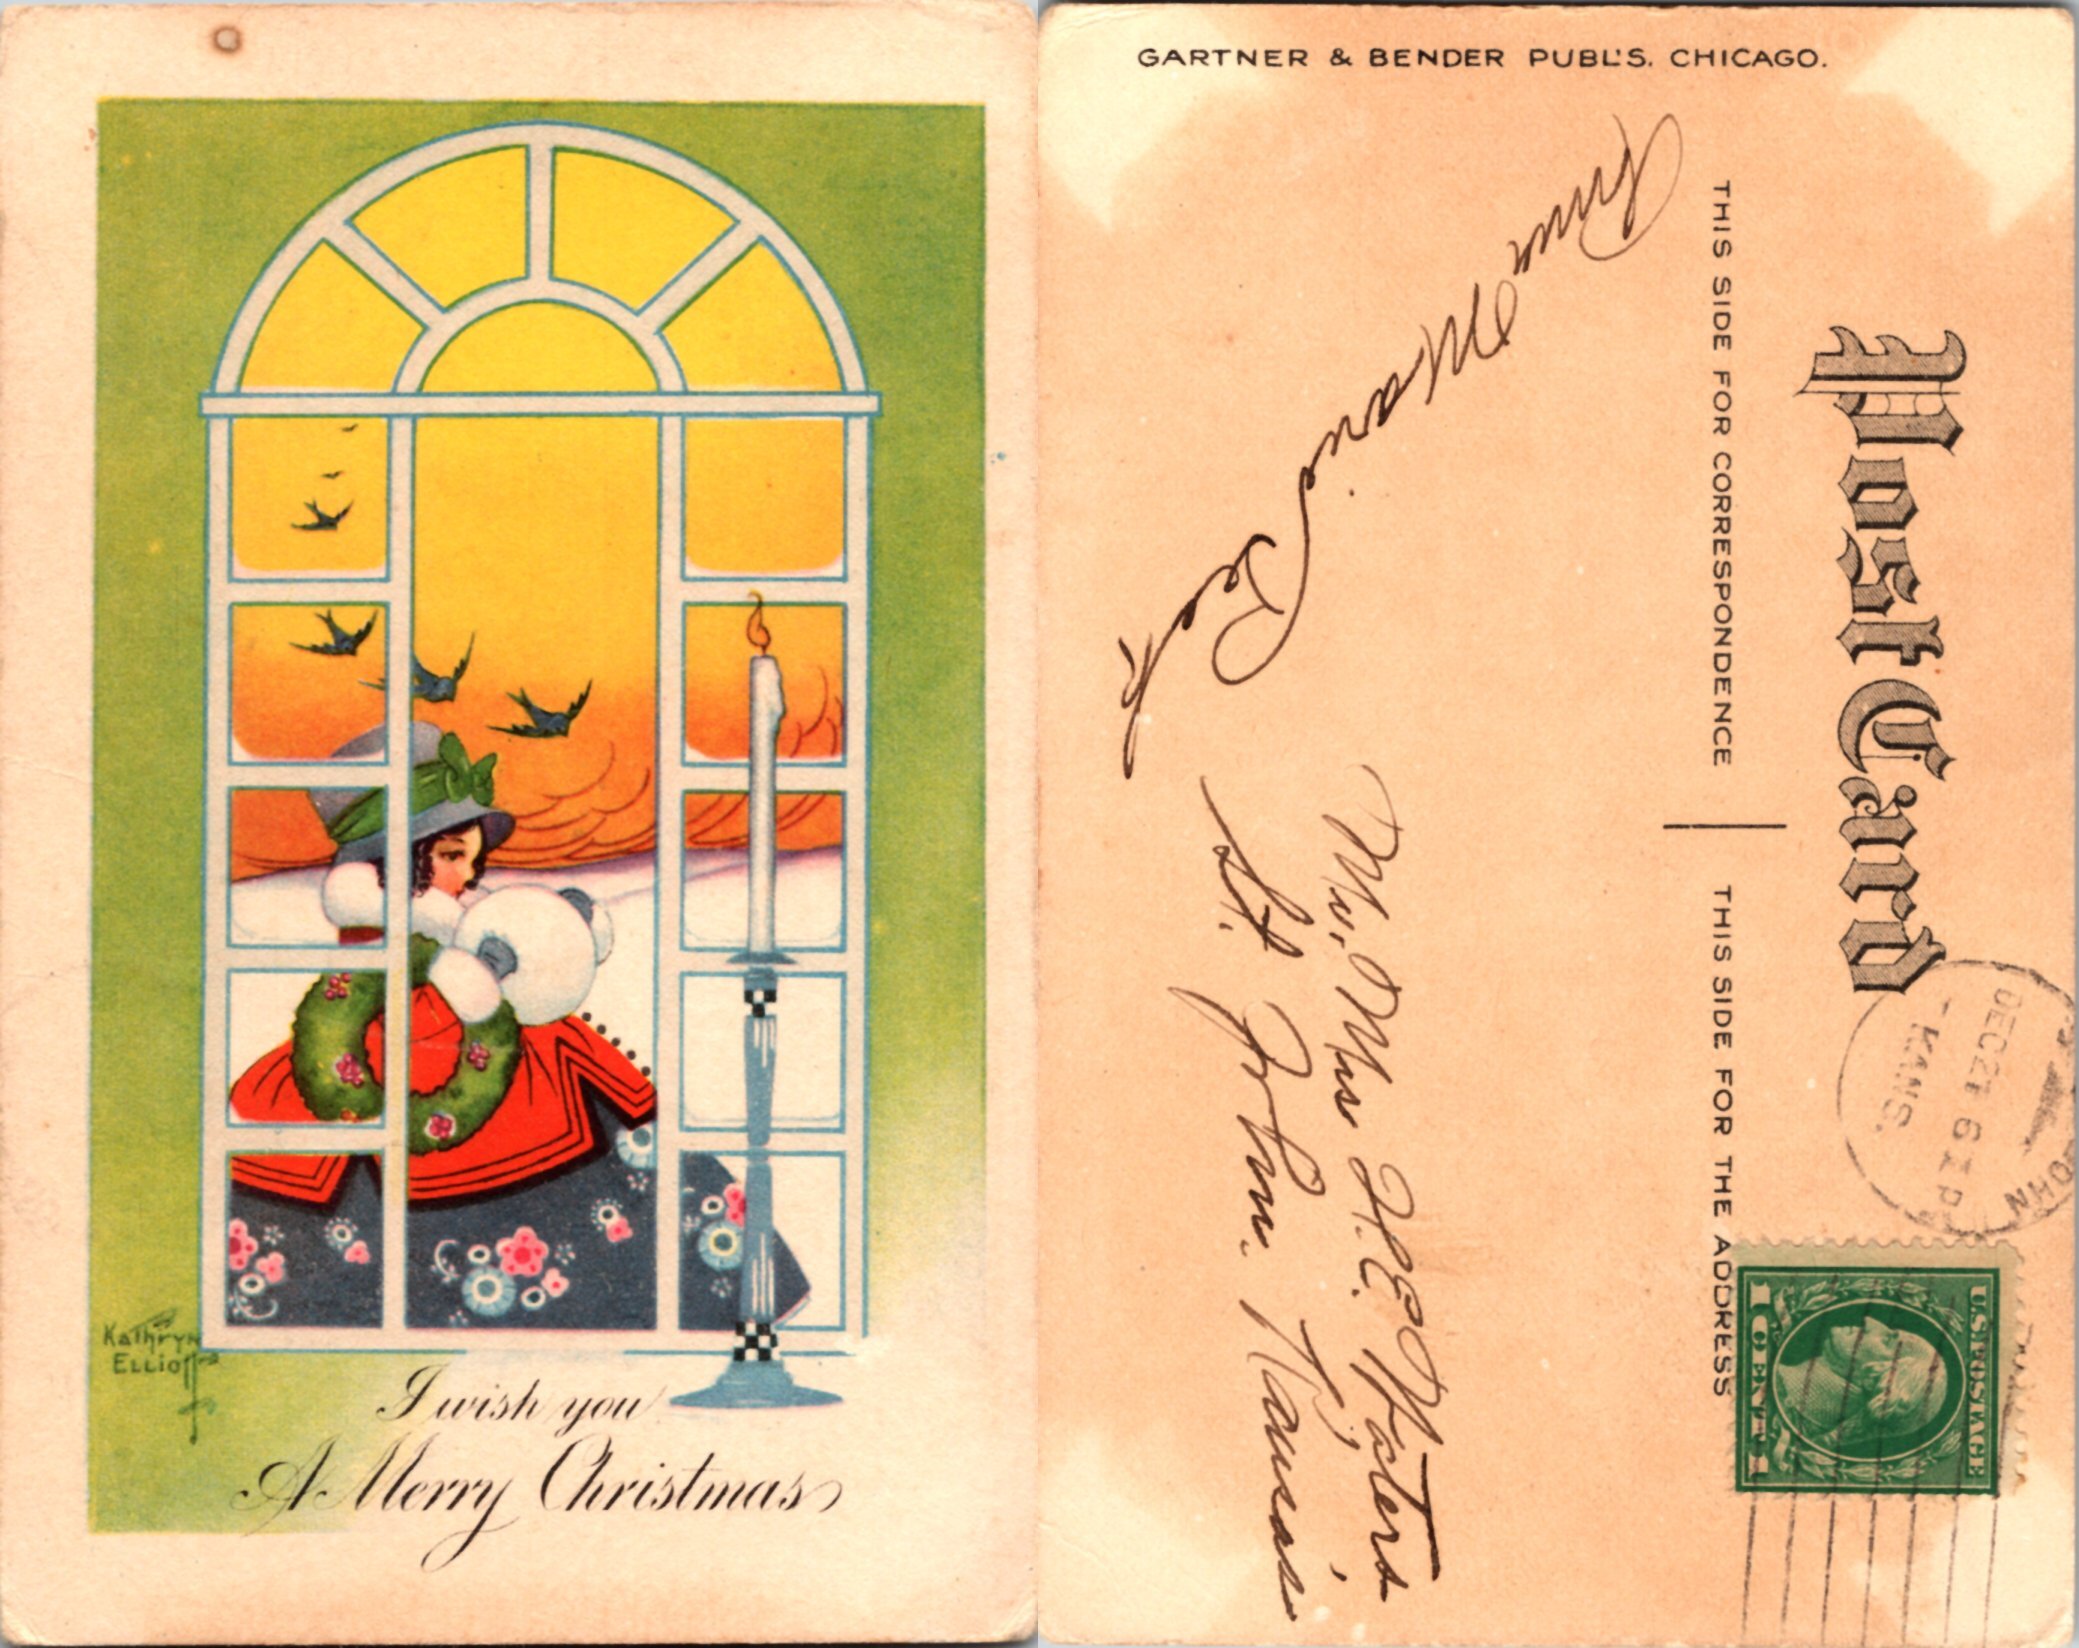 Kathryn
Elliott
I wish you
A Merry Christmas
GARTNER & BENDER PUBL'S. CHICAGO.
Post Card
THIS SIDE FOR CORRESPONDENCE
THIS SIDE FOR THE ADDRESS
Anna Marie Peck
Mr. Mrs H.E. Waters
St. John. Kansas
OHN
DEC 21
6 1 P
KANS.
U.S. POSTAGE
1 CENT 1